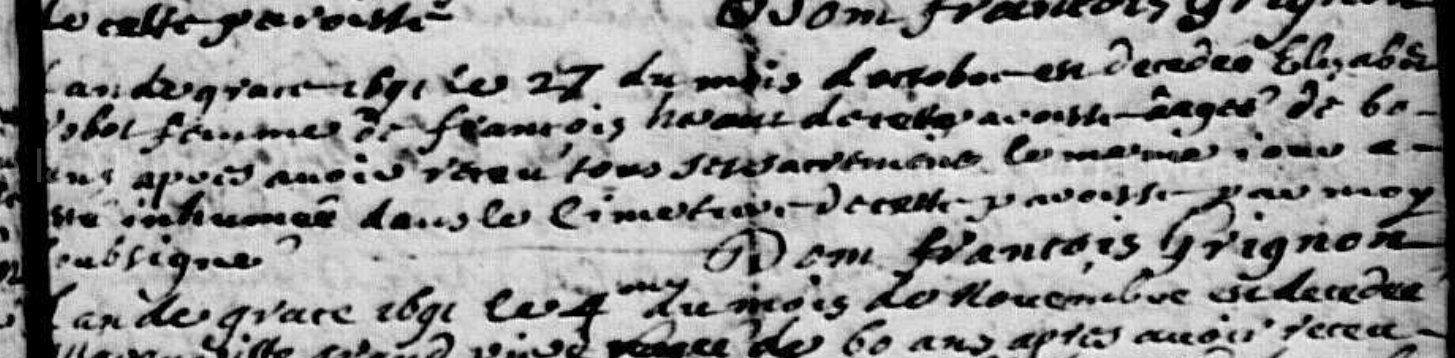 de cette paroisse Dom françois Grignon
Lan de grace 1691 le 27 du mois doctobre est decedeé Elizabet
femme de françois de cette paroisse ââgeé de 60
ans apres avoir receu tous ses sacremens le meme jour a
esté inhumeé dans le Cimetiere de cette paroisse par moy
soubsigné Dom françois Grignon
Lan de grace 1691 le 4 du mois de Novembre est decedeé
de 60 ans apres avoir receu